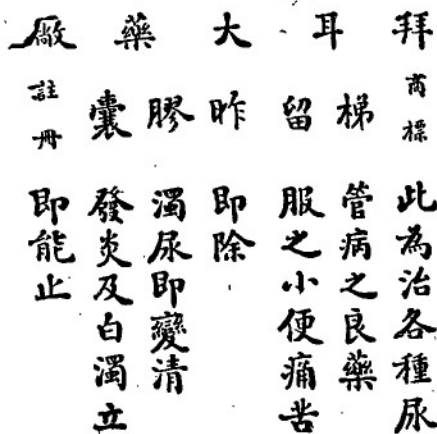 拜耳大藥廠
商標
梯留昨膠囊
註冊
此為治各種尿
管病之良藥
服之小便痛苦
即除
濁尿即變清
發炎及白濁立
即能止